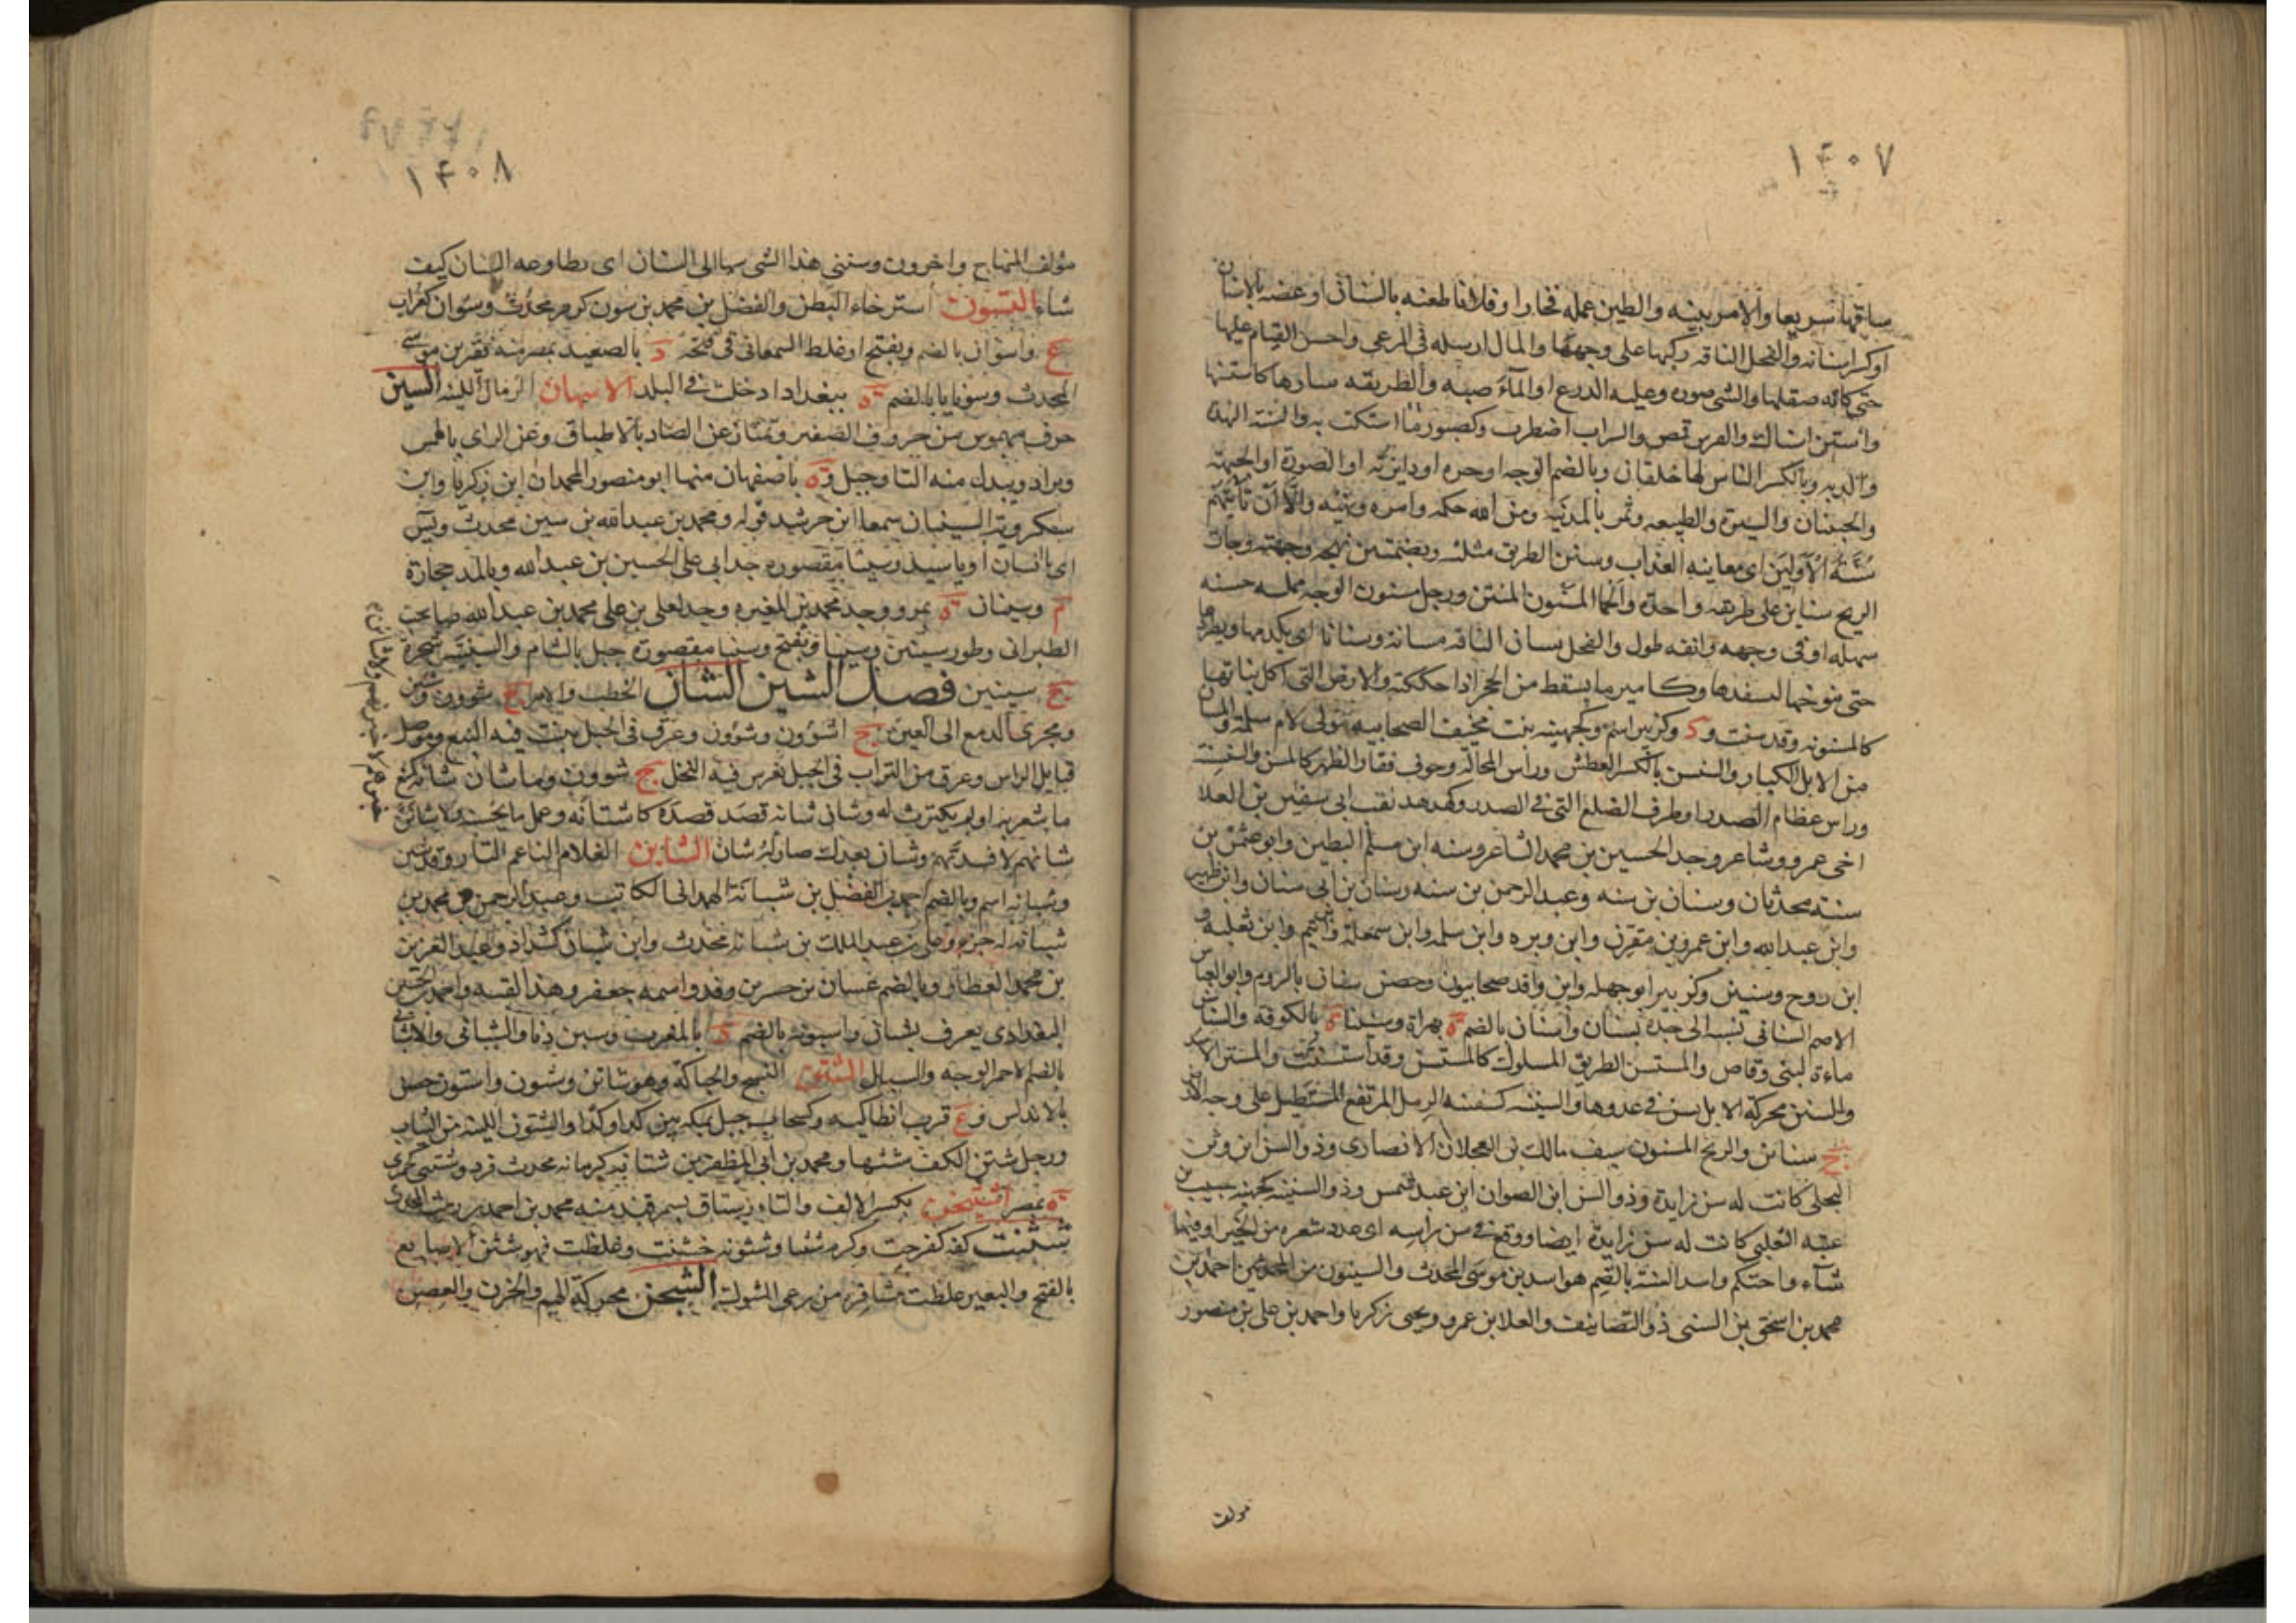 ١۴٠٧
ساقها سريعا والامر بينه والطين عمله فخارا وفلانا طعنه بالسنان او عضه بالاسنان
او كسر اسنانه والفحل الناقه كبها على وجهها والمال ارسله فى الرعى واحسن القيام عليها
حتى كانه صقلها والشى صوره وعليه الدرع او الماء صبه والطريقه سارها كاستنها
واستن استاك والفرس قمص والسراب اضطرب وكصبور ما استكت به والسنه الدبه
والدبه وبالكسر الناس لها خلقان وبالضم الوجه او حره او دايرته او الصورة او الجبهة
والجبينان والسيرة والطبيعه وتمر بالمدينه ومن الله حكمه وامره ونهيه والا ان تاتيهم
سُنَّةُ الأوّلين اى معاينه العذاب وسنن الطريق مثلثه وبضمتين نهجه وجهته وجاءت
الريح سناين على طريقه واحدة والحما المسنون المنتن ورجل مسنون الوجه مملسه حسنه
سهله او فى وجهه وانفه طول والفحل يسان الناقه مسانة وسنانا اى يكدمها ويطردها
حتى ينوخها ليسفدها وكامير ما يسقط من الحجر اذا حككته والارض التى اكل نباتها
كالمسنونه وقد سنت و د وكزبير اسم وكجهينه بنت مخنف الصحابيه ومولى لام سلمة والمسان
من الابل الكبار والسنسن بالكسر العطش وراس المحالة وحرف فقار الظهر كالسن والسنسنة
وراس عظام الصدر او طرف الضلع التى فى الصدر وكهدهد لقب ابى سفين بن العلا
اخى عمرو وشاعر وجد الحسين بن محمد الشاعر وسنه ابن مسلم البطين وابو عثمن بن
سنة محدثان وسنان بن سنه وعبد الرحمن بن سنه وسنان بن ابى سنان وابن ظهير
وابن عبد الله وابن عمرو بن مقرن وابن وبره وابن سلمه وابن سمعلة وابن تيم وابن ثعلبه و
ابن روح وسنين وكزبير ابو جميله وابن واقد صحابيون وحصن سنان بالروم وابو العباس
الاصم السنانى نسبه الى جده سنان واسنان بالضم ة بهراة وسينا ة بالكوفه والسناسن
ماءة لبنى وقاص والمستسن الطريق المسلوك كالمستسن وقد استسنت والمستن الاسد
والسنن محركة الابل تسن فى عدوها والسنينه كسفينه الرمل المرتفع المستطيل على وجه الارض
ج سناين والريح المسنون سيف مالك بن العجلان الانصارى وذو السن ابن وثن
البجلى كانت له سن زايدة وذو السن ابن الصوان ابن عبد شمس وذو السنينه كجهينه حبيب بن
عتبه الثعلبى كانت له سن زايدة ايضا ووقع فى سن راسه اى عدد شعره من الخير او فيما
شاء واحتكم واسد السنة بالضم هو اسد بن موسى المحدث والسنيون من المحدثين احمد بن
محمد بن اسحق بن السنى ذو التصانيف والعلا بن عمرو ويحيى زكريا واحمد بن على بن منصور
مولف
١۴٠٨
مؤلف المنهاج واخرون وسننى هذا الشى سهل الى السنان اى يطاوعه السنان كيف
شاء التسون استرخاء البطن والفضل بن محمد بن سون كروم محدث وسوان كغراب
ع واسوان بالضم ويفتح او غلط السمعانى فى فتحه د بالصعيد بمصر منه فقير بن موسى
المحدث وسونايا بالضم ة ببغداد ادخلت فى البلد الاسهان الرمال اللينه السين
حرف مهموس من حروف الصفير وتمتاز عن الصاد بالاطباق وعن الزاى بالهمس
ويزاد ويبدل منه التا وجبل و ة باصفهان منها ابو منصور المحمدان ابن زكريا وابن
سكرويه السينيان سمعا ابن خرشيد قوله ومحمد بن عبد الله بن سين محدث ويس
اى يا انسان او يا سيد وسينا مقصوره جد ابى على الحسين بن عبد الله وبالمد حجارة
م وسينان ة بمرو وجد محمد بن المغيره وجد لعلى بن على محمد بن عبد الله صاحب
الطبرانى وطور سينين وسينا ويفتح وسينا مقصورة جبل بالشام والسينين شجرة
ج سينين فصل الشين الشان الخطب والامر ج شوون وشين
ومجرى الدمع الى العين ج اشؤون وشؤون وعرق فى الجبل ينبت فيه النبع وموصل
قبايل الراس وعرق من التراب فى الجبل يغرس فيه النخل ج شوون وما شان شانه كمنع
ما شعر به او لم يكترث له وشان شانه قصد قصده كاشتانه وعمل ما يحسنه ولاشانن
شانهم لافسدنهم وشان بعدك صار له شان الشابن الغلام الناعم التار وقد شبن
وشبانه اسم وبالضم احمد بن الفضل بن شبانة الهمدانى الكاتب وعبد الرحمن بن محمد بن
شبانه له جزء وعلى بن عبد الملك بن شبانة محدث وابن شبان كشداد وعبد العزيز
بن محمد العطار وبالضم غسان بن جسر بن فرقد واسمه جعفر وهذا لقبه واحمد بن الحسين
البغدادى يعرف بشبان واسبونه بالضم د بالمغرب وسبن دنا والشبانى والاشبانى
بالضم لاحمر الوجه والسبال الشتن النسج والحياكة وهو شاتن وشتون واشتون حصن
بالاندلس و ع قرب انطاكيه وكسحاب جبل بمكه بين كدا وكدا والشتون اللينه من الثياب
ورجل شتن الكف شثنها ومحمد بن ابى المظفر بن شتانه كرمانه محدث فرد وشتنى كجمزى
ة بمصر اشتيخن بكسر الالف والتاء رستاق بسمرقند منه محمد بن احمد بن مت المحدث
شثنت كفه كفرحت وكرم شثنا وشثونه خشنت وغلظت فهو شثن الاصابع
بالفتح والبعير غلظت مشافره من رعى الشوك الشجن محركة الهم والحزن والغصن